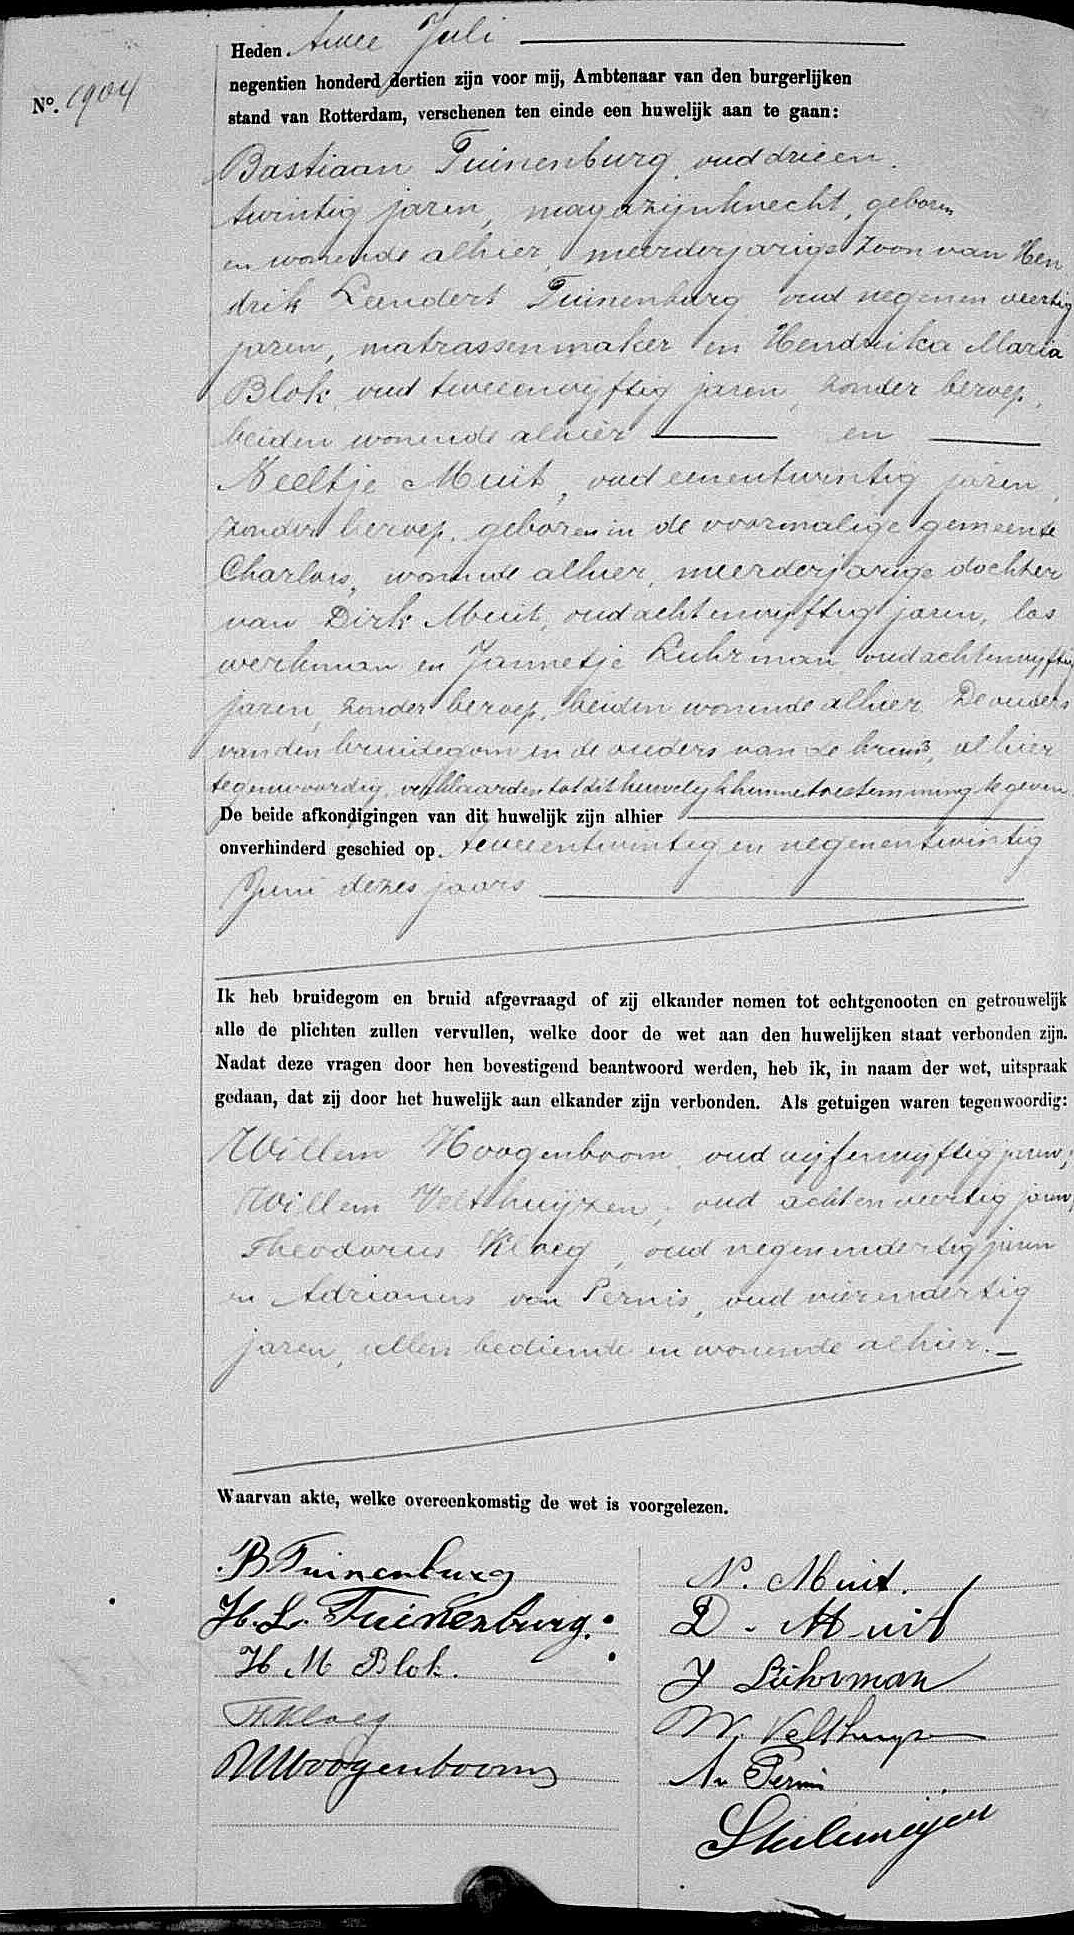 Heden. twee Juli
No. 1904
negentien honderd dertien zijn voor mij, Ambtenaar van den burgerlijken
stand van Rotterdam, verschenen ten einde een huwelijk aan te gaan:
Bastiaan Tuinenburg, oud drieen
twintig jaren, magazijnknecht, geboren
en wonende alhier, meerderjarige zoon van Hen
drik Leendert Tuinenburg oud negenen veertig
jaren, matrassenmaker en Hendrika Maria
Blok, oud tweeenvijftig jaren, zonder beroep,
beiden wonende alhier en
Neeltje Muit, oud eenentwintig jaren,
zonder beroep, geboren in de voormalige gemeente
Charlois, wonende alhier, meerderjarige dochter
van Dirk Muit, oud achtenvijftig jaren, los
werkman en Jannetje Luhrman oud achtenvijftig
jaren, zonder beroep, beiden wonende alhier. De ouders
van den bruidegom en de ouders van de bruid, alhier
tegenwoordig, verklaarden tot dit huwelijk hunne toestemming te geven.
De beide afkondigingen van dit huwelijk zijn alhier
onverhinderd geschied op. tweeentwintig en negenentwintig
Juni dezes jaars
Ik heb bruidegom en bruid afgevraagd of zij elkander nemen tot echtgenooten en getrouwelijk
alle de plichten zullen vervullen, welke door de wet aan den huwelijken staat verbonden zijn.
Nadat deze vragen door hen bevestigend beantwoord werden, heb ik, in naam der wet, uitspraak
gedaan, dat zij door het huwelijk aan elkander zijn verbonden. Als getuigen waren tegenwoordig:
Willem Hoogenboom, oud vijfenvijftig jaren;
Willem Velthuijzen, oud achtenveertig jaren,
Theodorus Kloeg, oud negenendertig jaren
en Adrianus van Pernis, oud vierendertig
jaren, allen bediende en wonende alhier.
Waarvan akte, welke overeenkomstig de wet is voorgelezen.
B Tuinenburg
N. Muit.
H. L. Tuinenburg.
D. Muit
H M Blok.
J Lührman
Th Kloeg
W. Velthuyzen
W Hoogenboom
A v Pernis